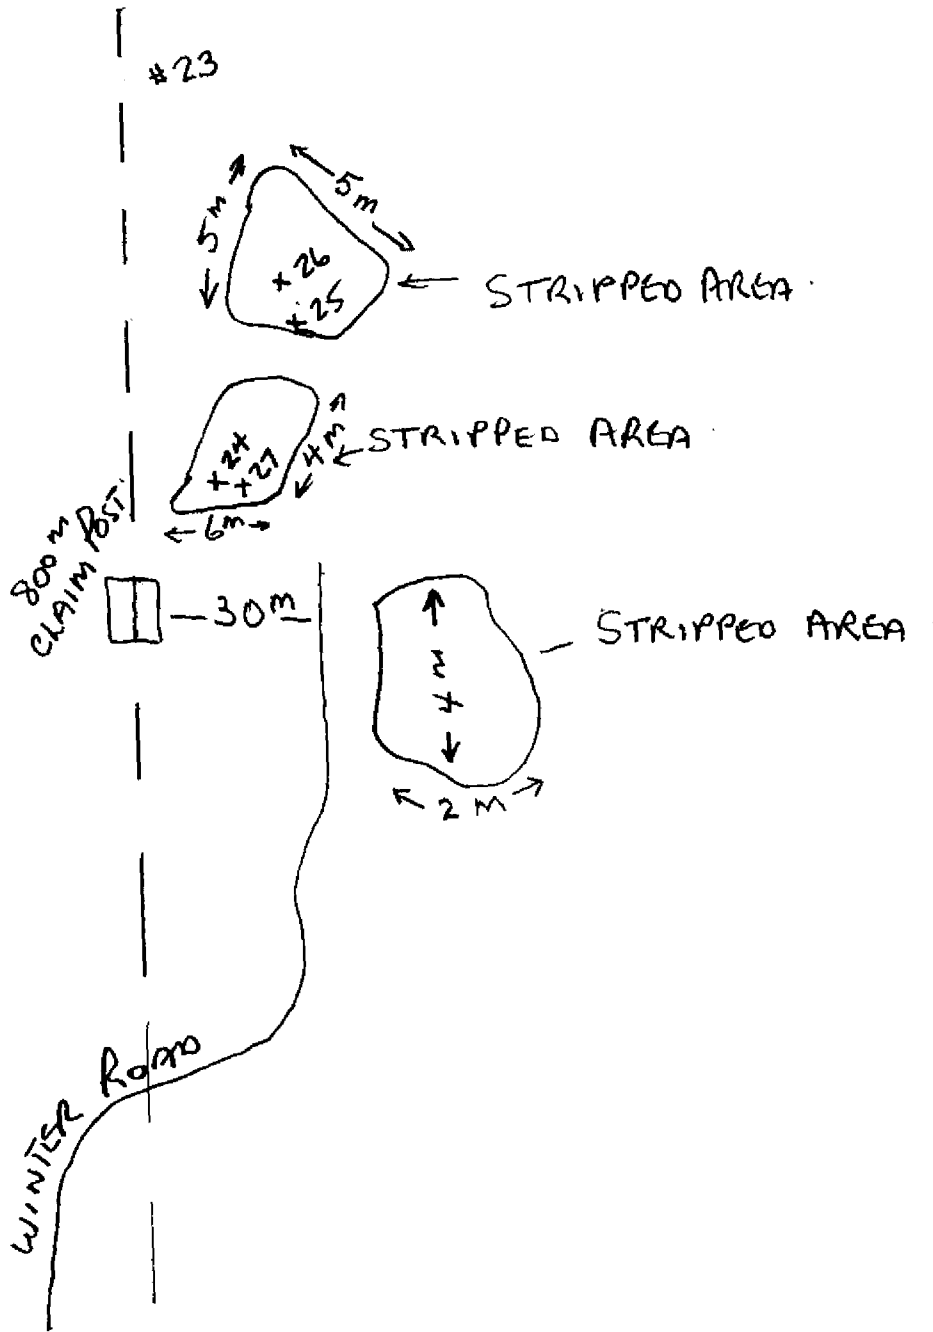 #23
5m
5m
+ 26
+ 25
STRIPPED AREA
+ 24
+ 27
4m
STRIPPED AREA
6m
800m
CLAIM POST.
30m
4 m
STRIPPED AREA
2 M
WINTER ROAD